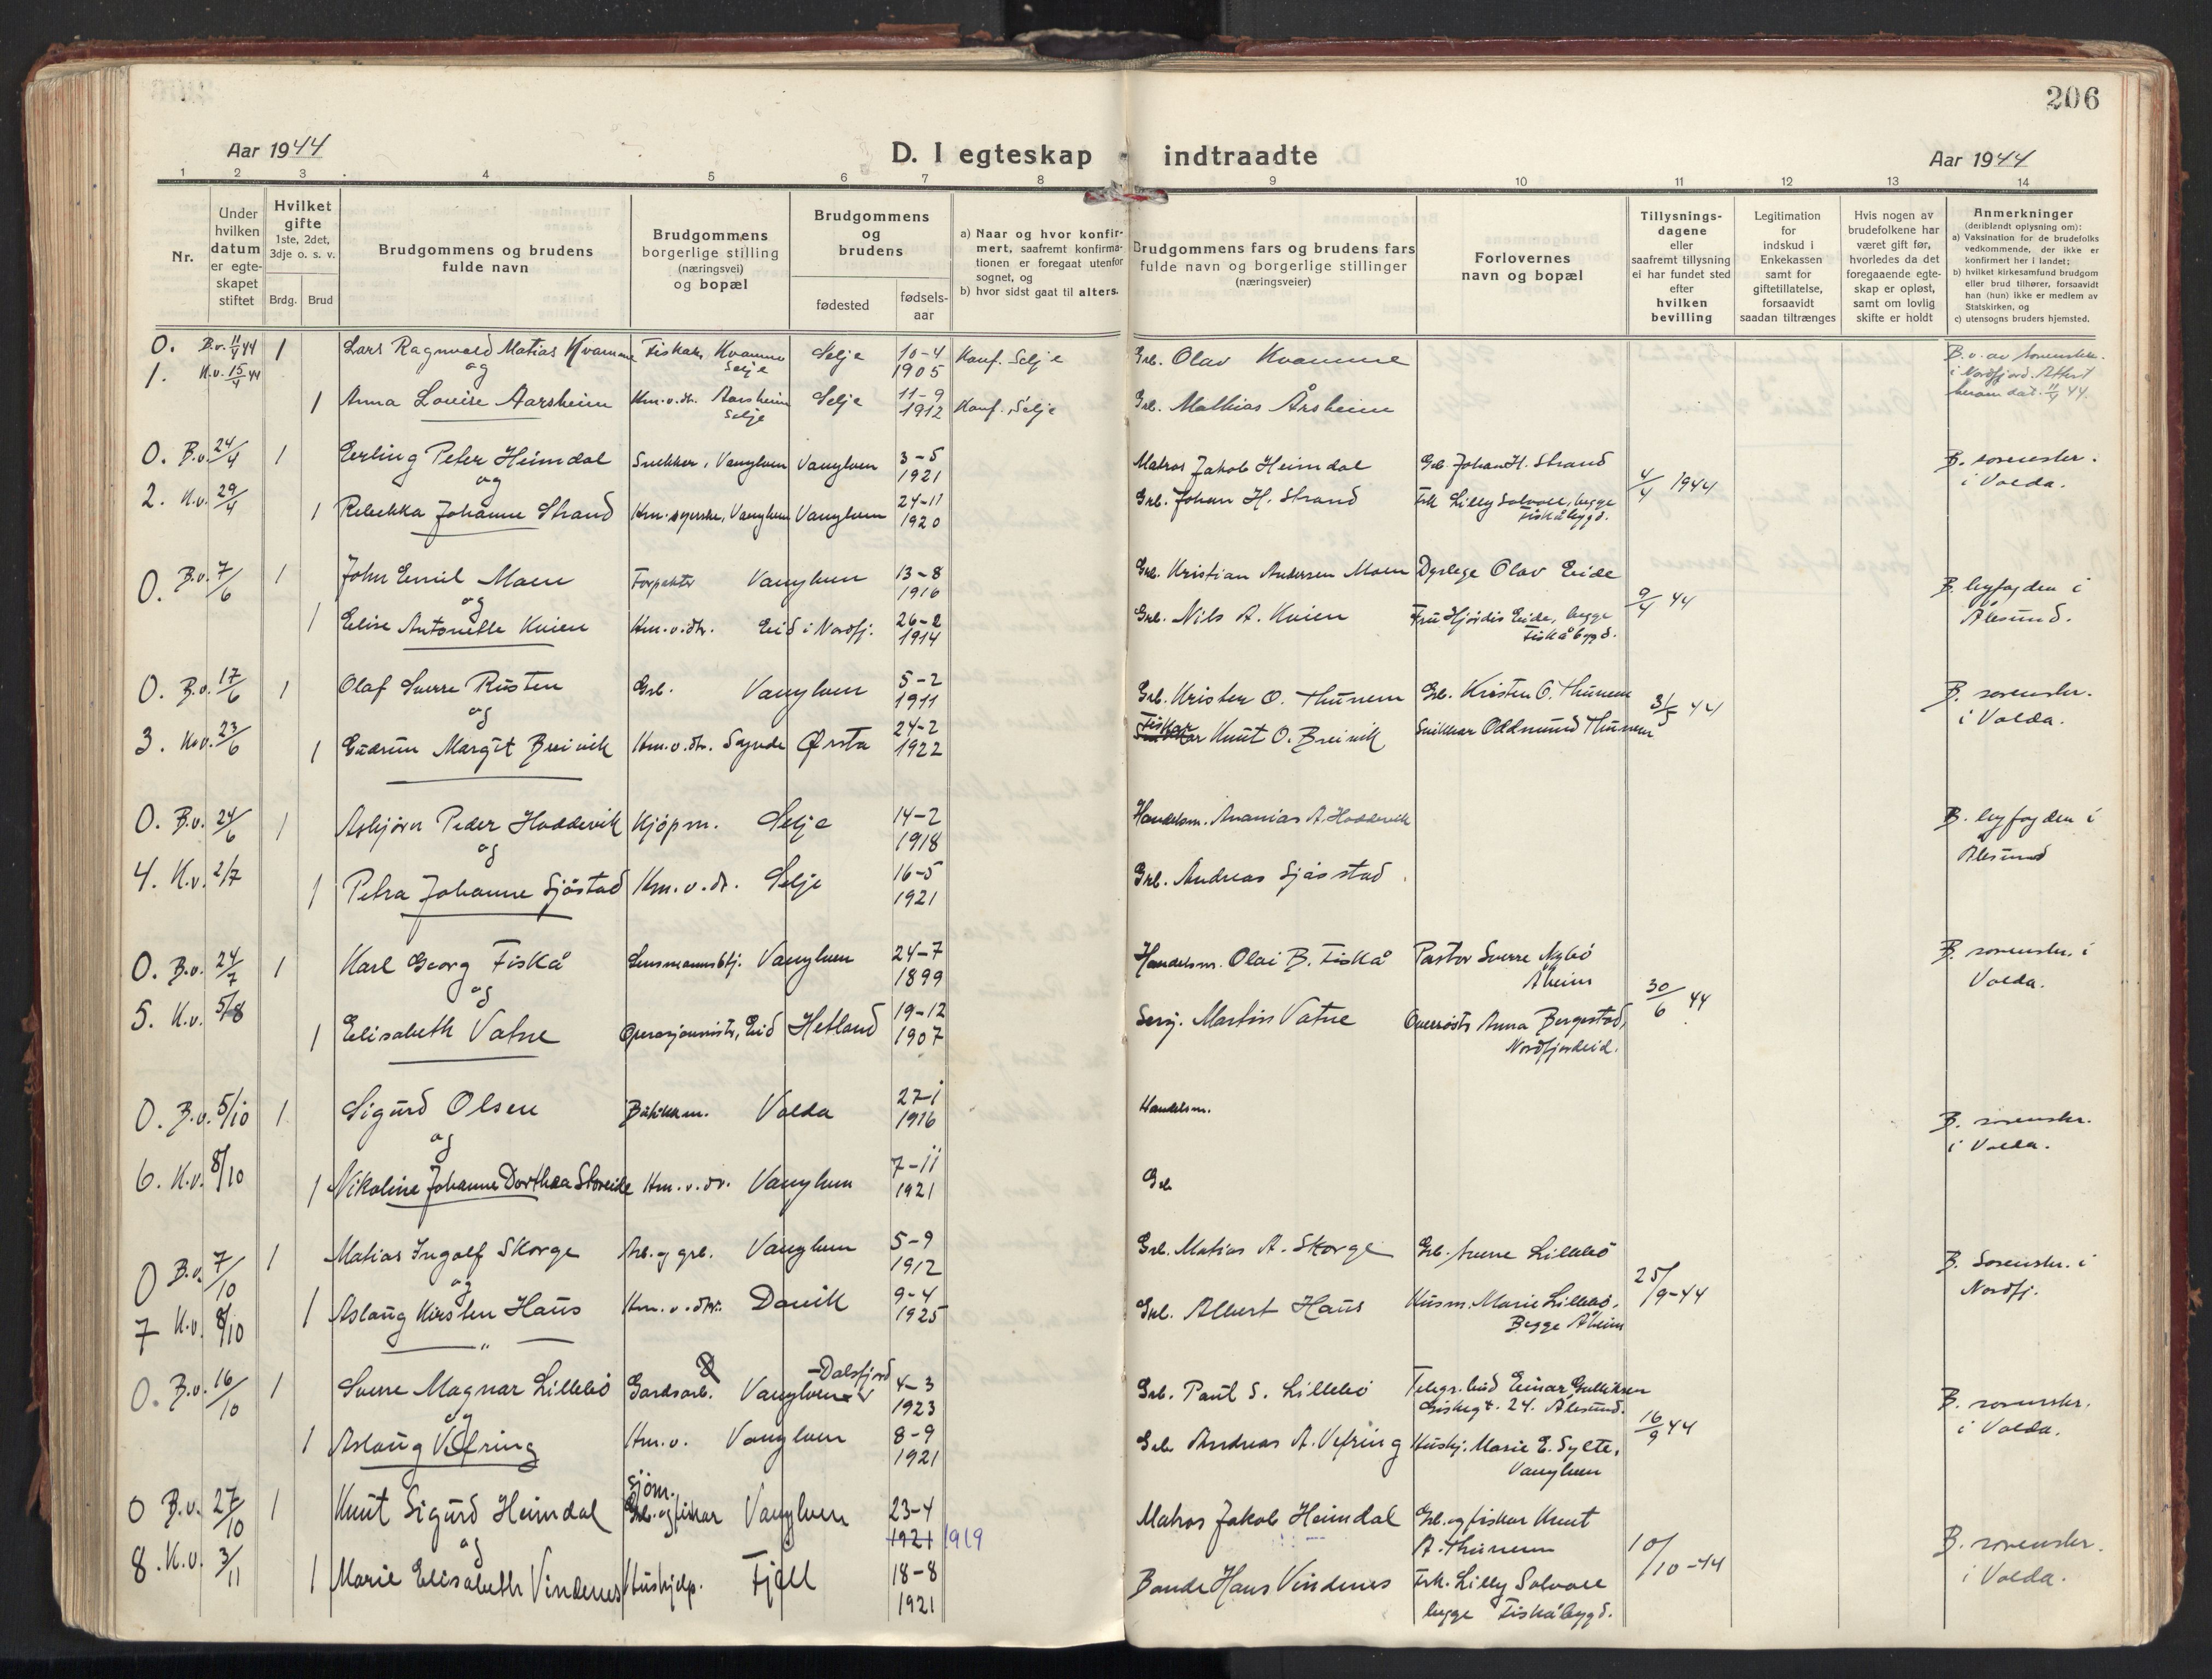 206
Aar 1944
D. I egteskap indtraadte
Aar 1944
1 2 3 4 5 6 7 8 9 10 11 12 13 14
Nr.
Under
hvilken
datum
er egte-
skapet
stiftet
Hvilket
gifte
1ste, 2det,
3dje o. s. v.
Brdg. Brud
Brudgommens og brudens
fulde navn
Brudgommens
borgerlige stilling
(næringsvei)
og bopæl
Brudgommens
og
brudens
fødested
fødsels-
aar
a) Naar og hvor konfir-
mert, saafremt konfirma-
tionen er foregaat utenfor
sognet, og
b) hvor sidst gaat til alters.
Brudgommens fars og brudens fars
fulde navn og borgerlige stillinger
(næringsveier)
Forlovernes
navn og bopæl
Tillysnings-
dagene
eller
saafremt tillysning
ei har fundet sted
efter
hvilken
bevilling
Legitimation
for
indskud i
Enkekassen
samt for
giftetillatelse,
forsaavidt
saadan tiltrænges
Hvis nogen av
brudefolkene har
været gift før,
hvorledes da det
foregaaende egte-
skap er opløst,
samt om lovlig
skifte er holdt
Anmerkninger
(deriblandt oplysning om):
a) Vaksination for de brudefolks
vedkommende, der ikke er
konfirmert her i landet;
b) hvilket kirkesamfund brudgom
eller brud tilhører, forsaavidt
han (hun) ikke er medlem av
Statskirken, og
c) utensogns bruders hjemsted.
0. B.v. 11/4 44 1 Lars Ragnvald Matias Kvamme Fiskar, Kvamme Selje 10-4 Konf. Selje Grb. Olav Kvamme B.v. av sorenskr.
1. K.v. 15/4 44 og Selje 1905 i Nordfjord. Attest
1 Anna Louise Aarsheim Hm.v.dtr. Aarsheim Selje 11-9 Konf. Selje Grb. Mathias Årsheim dat. 11/4 44.
Selje 1912
0. B.v. 24/4 1 Erling Peter Heimdal Snekker, Vanylven Vanylven 3-5 Matros Jakob Heimdal Grb. Johan H. Strand B. sorenskr.
og 1921 4/4 1944 i Volda.
2. K.v. 29/4 1 Rebekka Johanne Strand Hm. syerske, Vanylven Vanylven 24-11 Grb. Johan H. Strand Frk. Lilly Solvoll, begge
1920 Fiskåbygd.
0. B.v. 7/6 1 John Emil Moen Forpakter Vanylven 13-8 Grb. Kristian Andersen Moen Dyrlege Olav Eide B. byfogden i
og 1916 9/4 44
1 Elise Antonette Kvien Hm.v.dtr. Eid i Nordfj. 26-2 Grb. Nils A. Kvien Fru Hjördis Eide, begge Ålesund.
1914 Fiskåbygd.
0. B.v. 17/6 1 Olaf Sverre Rusten Grb. Vanylven 5-2 Grb. Krister O. Thunem Grb. Kristen O. Thunem B. sorenskr.
og 1911 31/5 44 i Volda.
3. K.v. 23/6 1 Gudrun Margit Breivik Hm.v.dtr. Synde Ørsta 24-2 Fiskar Knut O. Breivik Snikkar Oddmund Thunem
1922
0. B.v. 24/6 1 Asbjørn Peder Hoddevik Kjøpm. Selje 14-2 Handelsm. Ananias A. Hoddevik B. byfogden i
og 1918 Ålesund
4. K.v. 2/7 1 Petra Johanne Sjåstad Hm.v.dt. Selje 16-5 Grb. Andreas Sjåstad.
1921
0. B.v. 24/7 1 Karl Georg Fiskå Lensmannsbtj. Vanylven 24-7 Handelsm. Olai B. Fiskå Pastor Sverre Nybö B. sorenskr. i
og 1899 Åheim Volda.
5. K.v. 5/8 1 Elisabeth Vatne Operasjonsstr., Eid Hetland 19-12 Serg. Martin Vatne Oversöstr Anna Bergestad, 30/6 44
1907 Nordfjordeid.
0. B.v. 5/10 1 Sigurd Olsen Butikkm. Volda 27-1 Handelsm. B. sorenskr.
og 1916 i Volda.
6. K.v. 8/10 1 Nikoline Johanne Dorthea Storeide Hm.v.dt. Vanylven 7-11 Grb
1921
0 B.v. 7/10 1 Matias Ingolf Skorge Arb. og grb. Vanylven 5-9 Grb. Matias A. Skorge Grb. Sverre Lillebö B. Sorenskr. i
og 1912 25/9-44 Nordfj.
7 K.v. 8/10 1 Aslaug Kirsten Haus Hm.v.dtr. Davik 9-4 Grb. Albert Haus Husm. Marie Lillebö.
1925 Begge Åheim
0. B.v. 16/10 1 Sverre Magnar Lillebö Gardsarb. Vanylven -Dalsfjord 4-3 Grb. Paul S. Lillebö Telegr.bud Einar Gulliksen B. sorenskr.
og 1923 24. Ålesund. 16/9 44 i Volda.
1 Aslaug Vefring Hm.v. Vanylven 8-9 Grb Andreas A. Vefring Hushj. Marie E. Sylte,
1921 Vanylven
0 B.v. 27/10 1 Knut Sigurd Heimdal Sjöm. Grb. og fiskar Vanylven 23-4 Matros Jakob Heimdal Grb. og fiskar Knut B. sorenskr.
og 1921 1919 A. Thunem 10/10-44 i Volda.
8. K.v. 3/11 1 Marie Elisabeth Vindenes Hushjelp. Fjell 18-8 Bonde Hans Vindenes Frk. Lilly Solvoll
1921 begge Fiskåbygd.